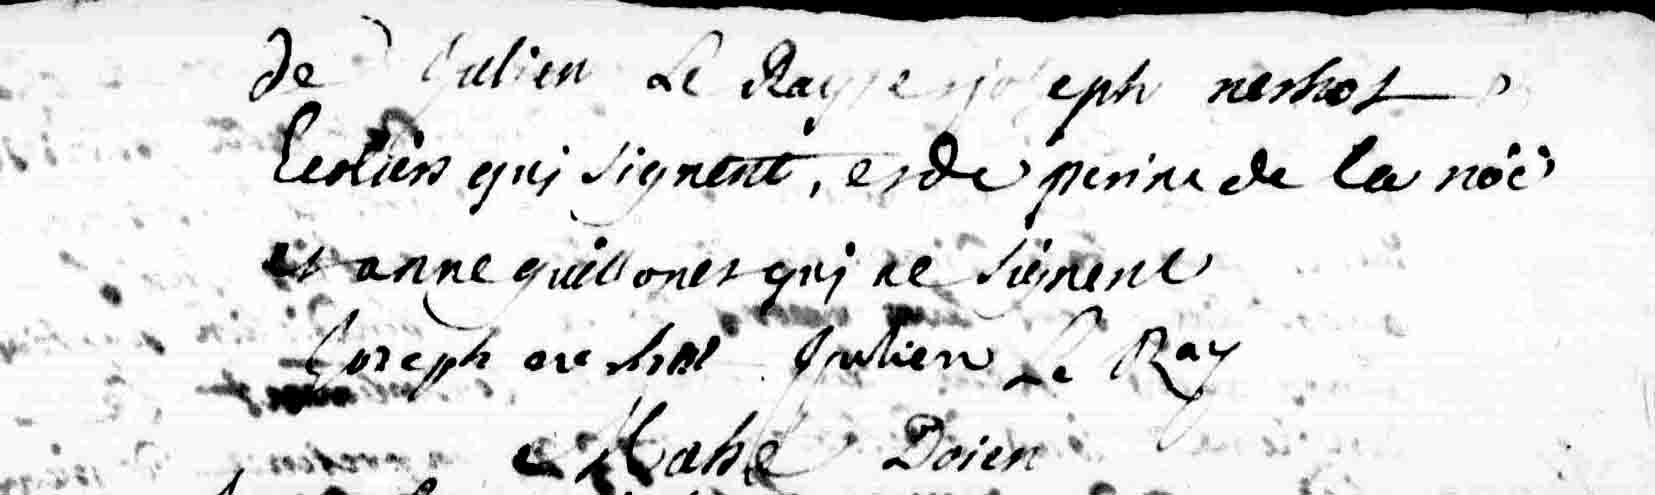 de Julien Le Ray et joseph neshot
Ecoliers qui signent, et de perine de la nöe
et anne guillonet qui ne signent
Joseph neshot Julien Le Ray
Mahé Doien